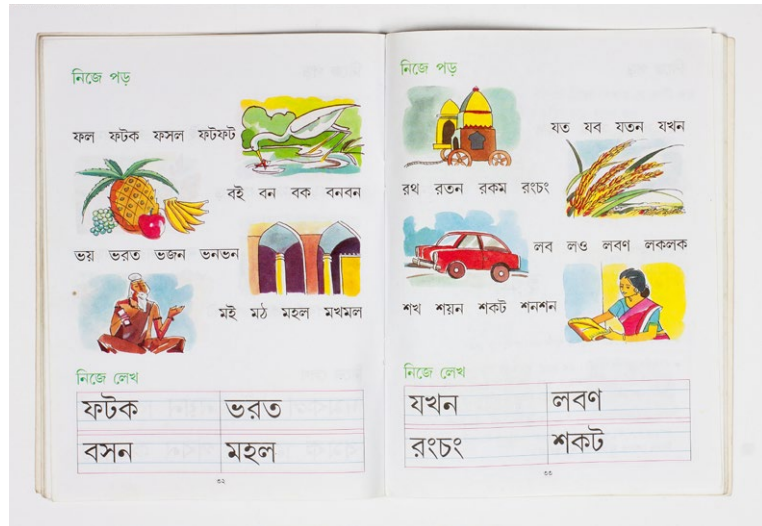 নিজে পড়
ফল ফটক ফসল ফটফট
বই বন বক বনবন
ভয় ভরত ভজন ভনভন
মই মঠ মহল মখমল
নিজে লেখ
ফটক ভরত
বসন মহল
৩২
নিজে পড়
যত যব যতন যখন
রথ রতন রকম রংচং
লব লও লবণ লকলক
শখ শয়ন শকট শনশন
নিজে লেখ
যখন লবণ
রংচং শকট
৩৩